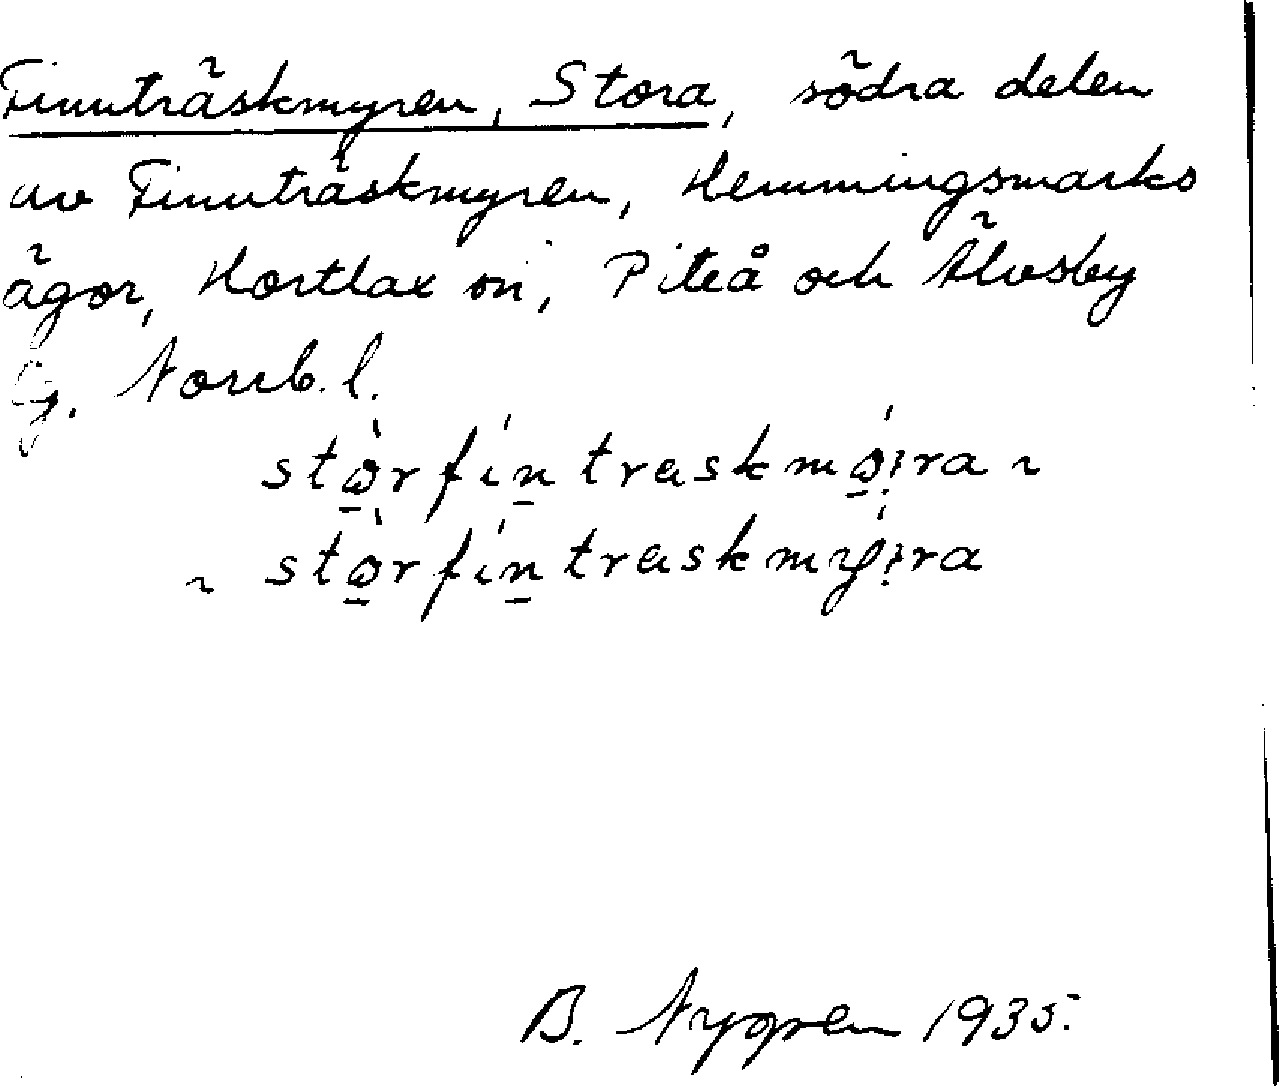 Finnträskmyren, Stora, södra delen
av Finnträskmyren, Hemmingsmarks
ägor, Hortlax sn, Piteå och Älvsby
tg. Norrb. l.
stòrfíntrasskmǿra ~
~ stòrfíntrasskmýra
B. Nygren 1935.